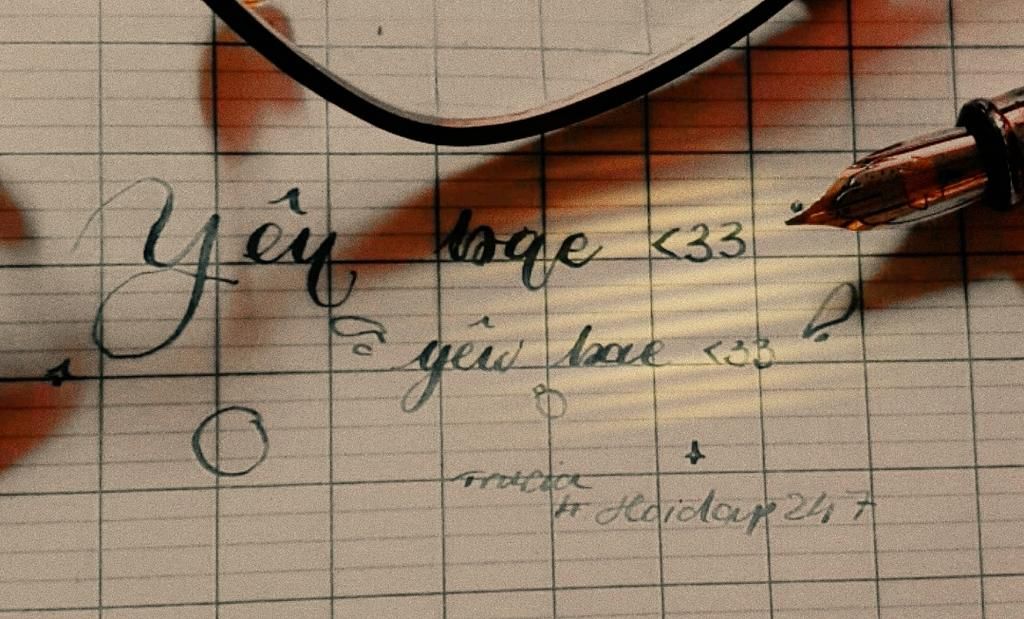 Yêu bae <33
yêu bae <33
# Hoidap247